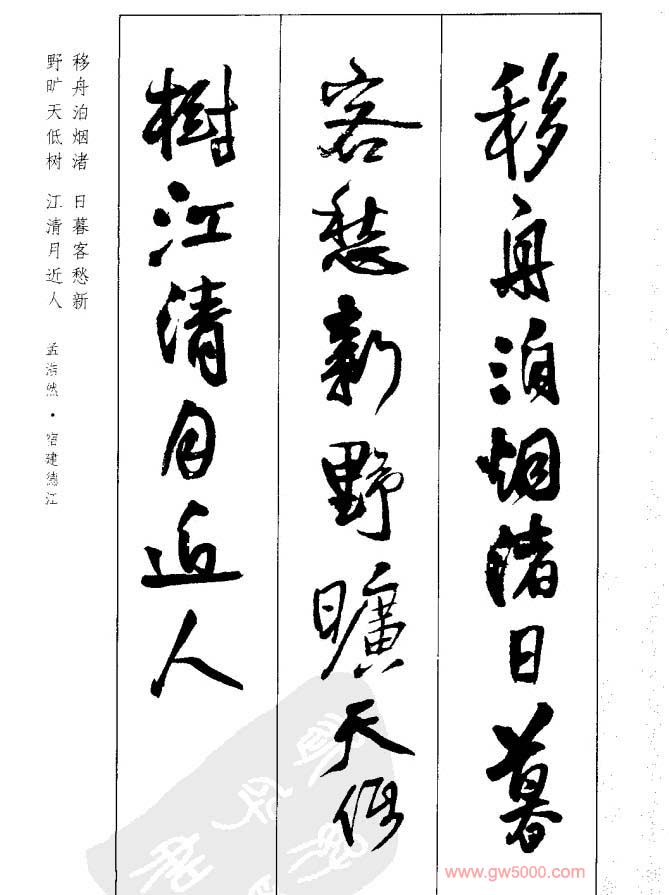 移舟泊烟渚日暮
客愁新野曠天低
樹江清月近人
移舟泊烟渚 日暮客愁新
野旷天低树 江清月近人 孟浩然·宿建德江
www.gw5000.com